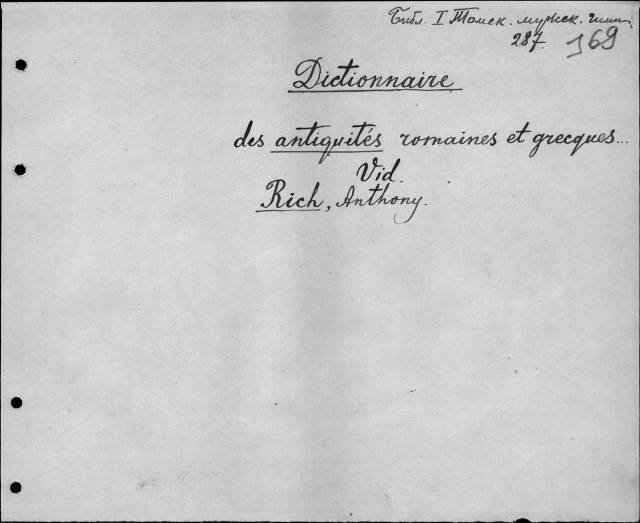 Библ. I Томск. мужск. гимн.
287. 169
Dictionnaire
des antiquités romaines et grecques...
Vid.
Rich, Anthony.